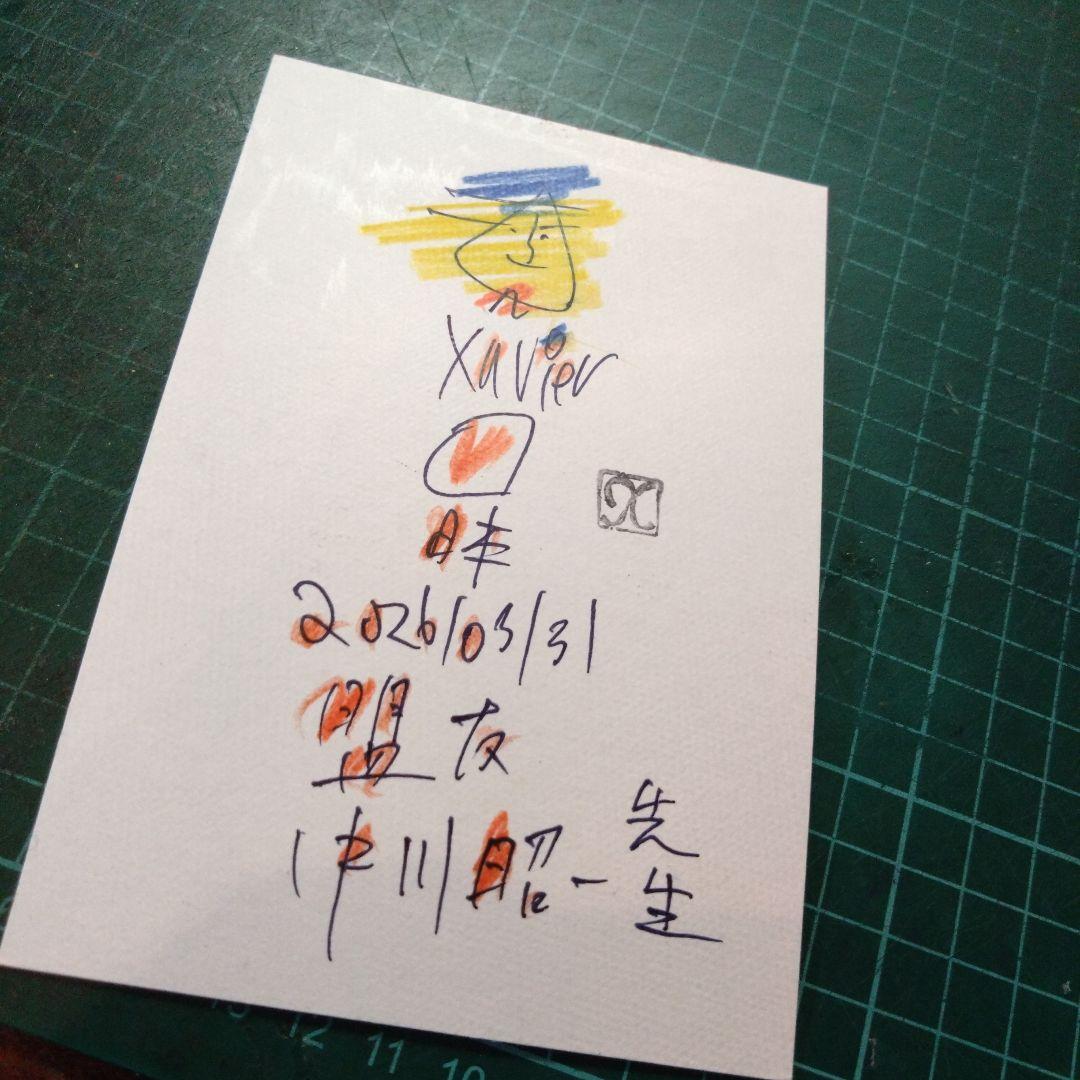 Xavier
日本
2026/03/31
盟友
中川昭一先生
12 11 10